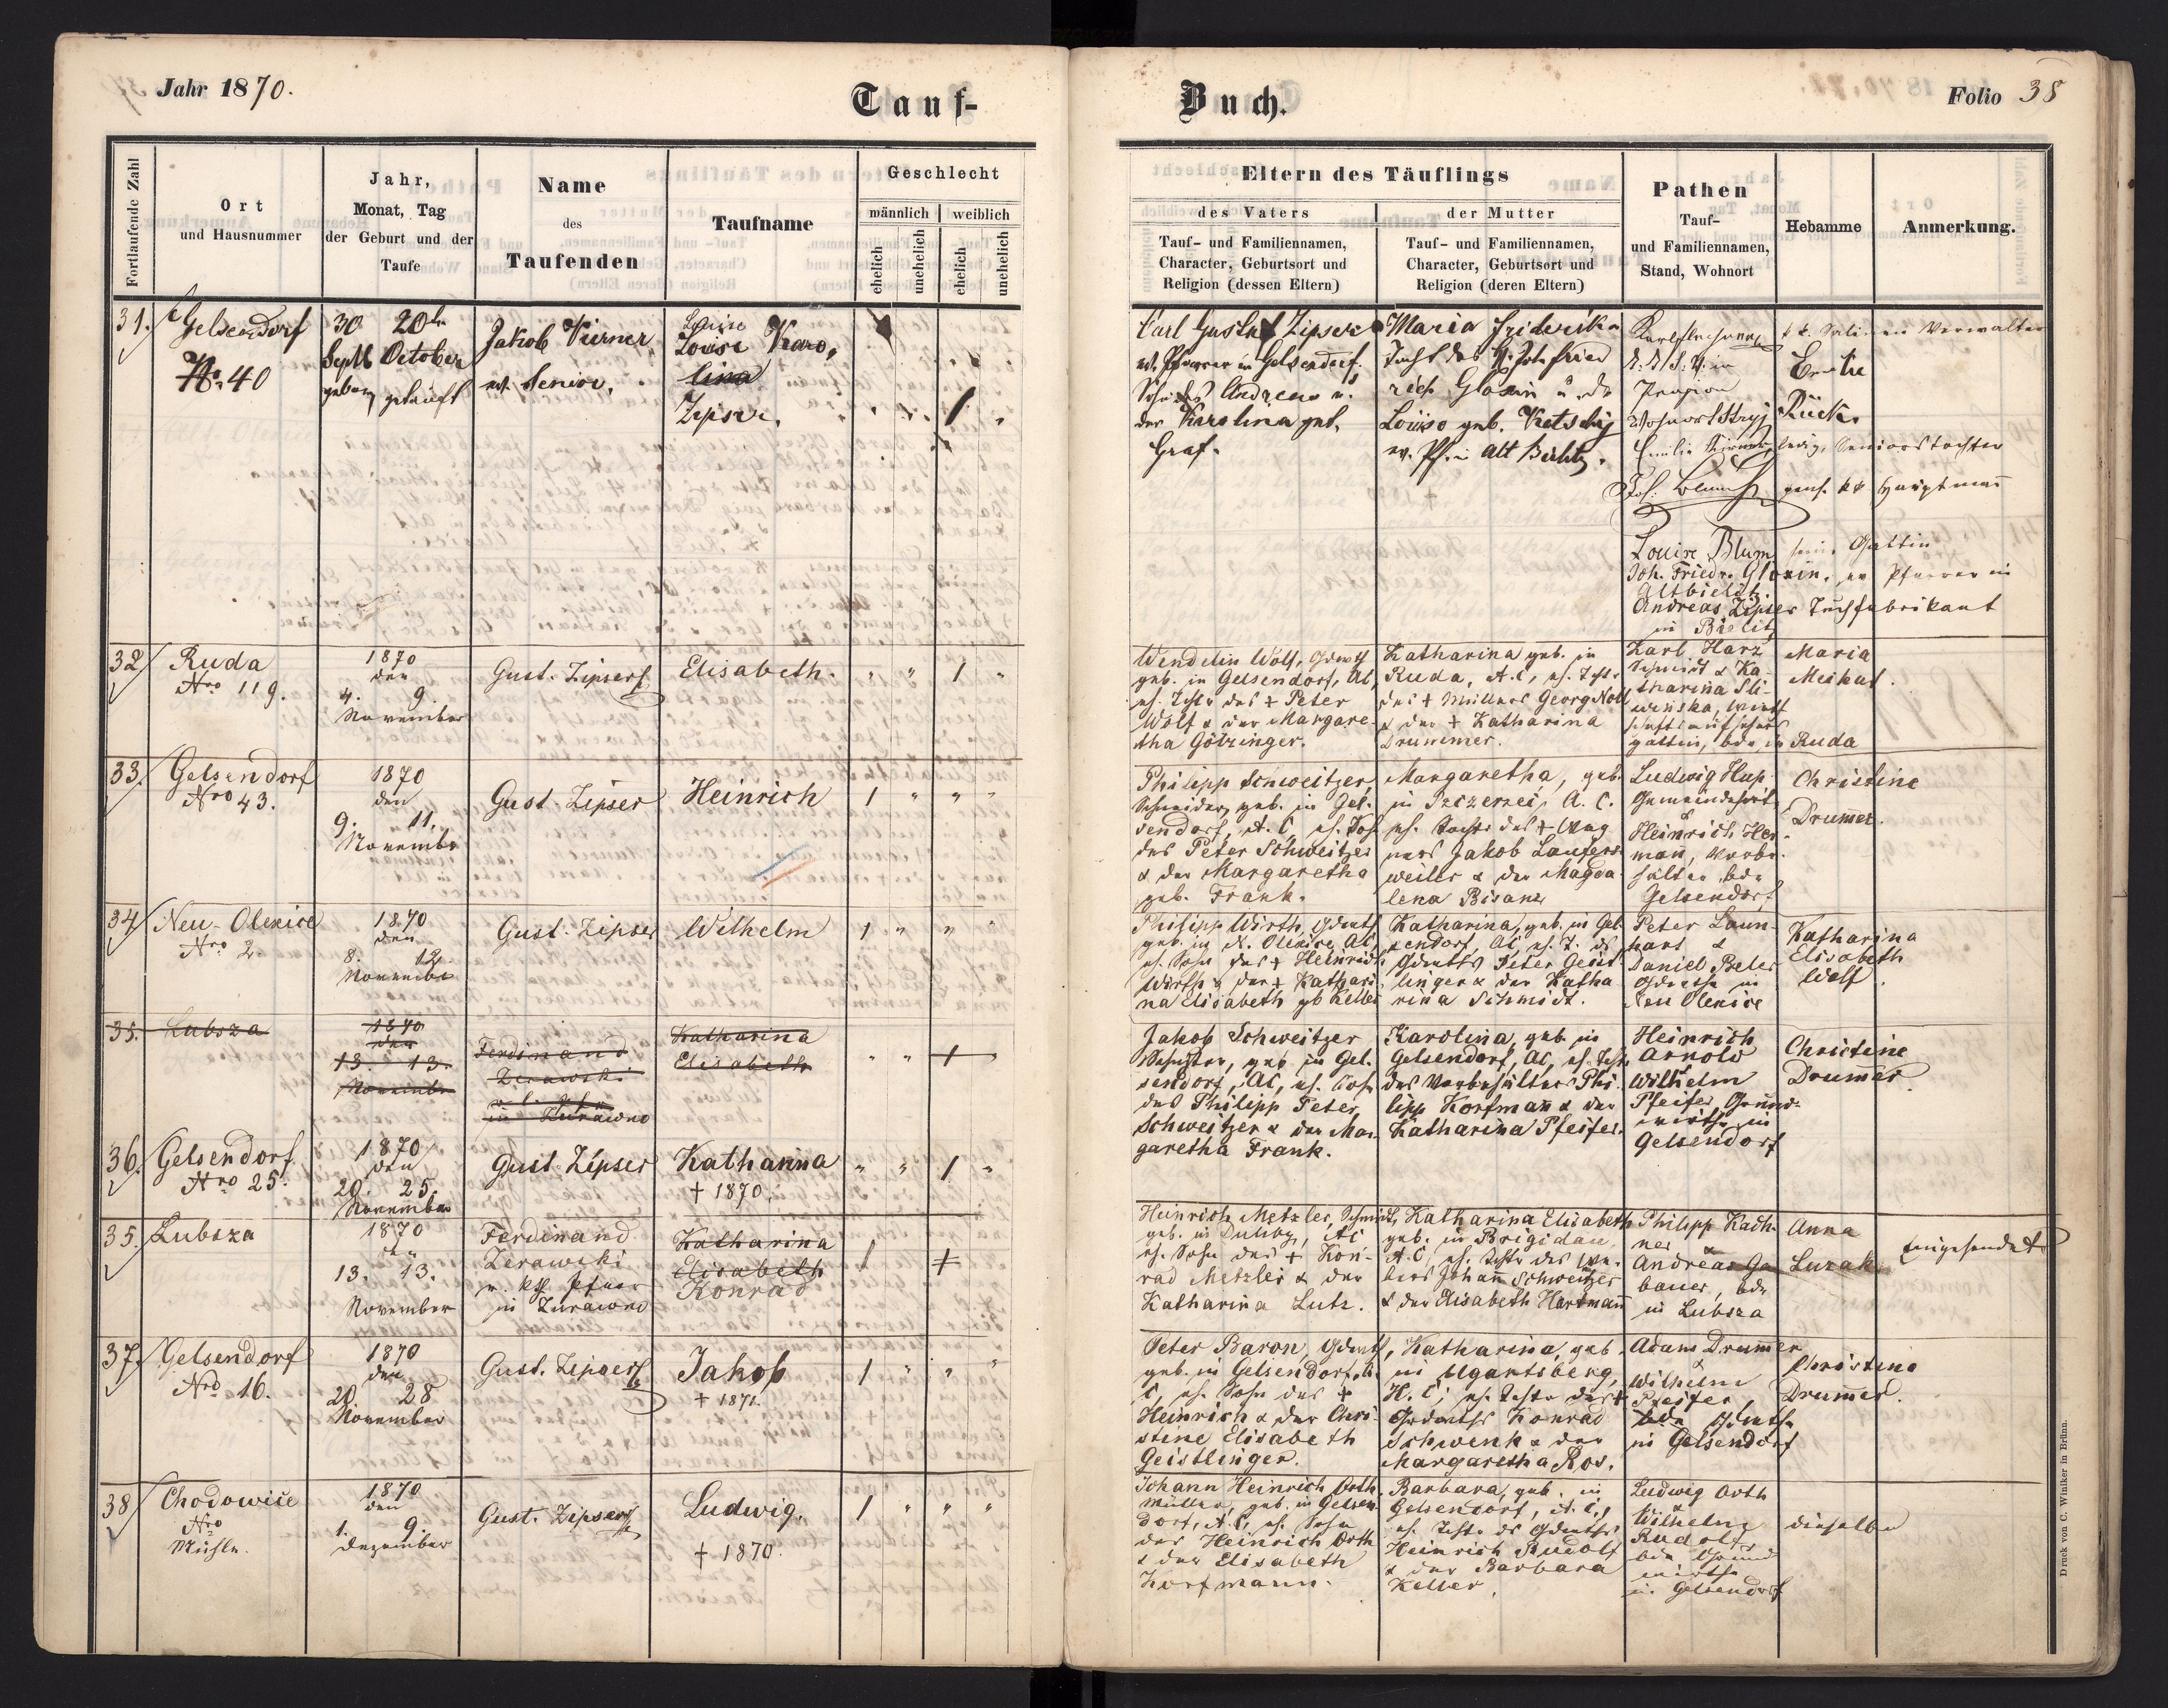 Jahr 1870.
Tauf-
Buch.
Folio 38
Fortlaufende Zahl
Ort
und Hausnummer
Jahr,
Monat, Tag
der Geburt und der
Taufe
Name
des
Taufenden
Taufname
Geschlecht
männlich
weiblich
ehelich
unehelich
ehelich
unehelich
Eltern des Täuflings
des Vaters
Tauf- und Familiennamen,
Character, Geburtsort und
Religion (dessen Eltern)
der Mutter
Tauf- und Familiennamen,
Character, Geburtsort und
Religion (deren Eltern)
Pathen
Tauf-
und Familiennamen,
Stand, Wohnort
Hebamme
Anmerkung.
31.
Gelsendorf
No. 40
30 20ten
Septb October
geboren getauft
Jakob
ev. Senior.
Louise
Louise Karo,
lina
Zipser.
" " 1 "
Carl Gustav Zipser
ev. Pfarrer in Gelsendorf.
Sohn des Andreas u.
der Karolina geb.
Graf.
Maria Friderika
Tocht des H. Joh. Fried
rich Gloxin u. der
Louise geb.
ev. Pf. in Alt Bielitz.
k. k. Salinen Verwalter
in
Pension
Wohnort Stryj
Emilie
ledig, Seniorstochter
pens. kk Hauptmann
Rück.
Louise Blum seine Gattin
Joh. Friedr. Gloxin, ev Pfarrer in
Altbielitz.
Andreas Zipser Tuchfabrikant
in Bielitz
32
Ruda
Nro 119.
1870
den
4. 9.
November
Gust. Zipser
Elisabeth.
" " 1 "
Wendelin Wolf, Gdwth
geb. in Gelsendorf, AC,
des + Peter
Wolf & der Margare-
tha Götzinger.
Katharina geb. in
Ruda, A.C, eh. Tchtr
des + Müllers Georg Noll
& der + Katharina
Drummer.
Karl Harz
Schmidt & Ka-
tharina Sli-
winska, Wirth
schaftsaufsehers
gattin, bde in Ruda
Maria
Meikat.
33.
Gelsendorf
Nro 43.
1870
den
9. 11.
November
Gust. Zipser
Heinrich
1 " " "
Philipp Schweitzer,
Schneider, geb. in Gel-
sendorf, A.C, eh. Sohn
des Peter Schweitzer
& der Margaretha
geb. Frank.
Margaretha, geb.
in A.C.
eh. Tochter des + Wag
ners Jakob Laufers-
weiler & der Magda-
lena Bisanz
Ludwig Hup
&
Heinrich Her-
mann,
bde
Gelsendorf
Christine
Drummer.
34
Neu-Olexice
Nro 2.
1870
den
8. 12.
November
Gust. Zipser
Wilhelm
1 " " "
Philipp Wirth, Gdwth
geb. in N. Olexice, AC,
eh. Sohn des + Heinrich
Wirth & der + Kathari
na Elisabeth gb Keller
Katharina, geb. in Gel
sendorf, AC, eh. T. ds
Gdwths Peter Geist-
linger & der Katha
rina Schmidt.
Peter Laun-
hart &
Daniel Beler
Gdwthe in
Neu Olexice
Katharina
Elisabeth
Wolf.
35.
Lubsza
1870
den
13. 13.
November
Ferdinand
Zerawski
in Zurawno
Katharina
Elisabeth
" " 1
Jakob Schweitzer
Schuster, geb in Gel-
sendorf, AC, eh. Sohn
des Philipp Peter
Schweitzer & der Mar-
garetha Frank.
Karolina, geb. in
Gelsendorf, AC, eh. Tcht
des Phi-
lipp Korfmann & der
Katharina Pfeifer.
Heinrich
Arnold
&
Wilhelm
Pfeifer Grund-
wirthe in
Gelsendorf
Christine
Drummer.
36.
Gelsendorf
Nro 25.
1870
den
20. 25.
November
Gust. Zipser
Katharina
+ 1870.
" " 1 "
35.
Lubsza
1870
den
13. 13.
November
Ferdinand
Zerawski
r. kth. Pfarr
in Zurawno
Katharina
Elisabeth
Konrad
1
Heinrich Metzler, Schmidt,
geb. in AC
eh. Sohn des + Kon-
rad Metzler & der
Katharina Lutz.
Katharina Elisabeth
geb. in Brigidau,
A.C, eh. Tchtr des We-
bers Johann Schweitzer
& der Elisabeth Hartmann
Philipp Kadh-
ner &
Andreas Ga-
bauer, bde
in Lubsza
Anna
Luzak
eingesendet
37.
Gelsendorf
Nro 16.
1870
den
20. 28
November
Gust. Zipser
Jakob
+ 1871.
1 " " "
Peter Baron, Gdwth,
geb. in Gelsendorf, A.
C, eh. Sohn des +
Heinrich & der Chri-
stine Elisabeth
Geistlinger.
Katharina, geb.
in Ugartsberg,
H.C, eh. Tchtr des +
Grdwths Konrad
Schwenk & der
Margaretha Ros.
Adam Drummer
&
Wilhelm
Pfeifer
bde Gdwthe
in Gelsendorf
Christine
Drummer.
38
Chodowice
Nro
Mühle.
1870
den
1. 9.
Dezember
Gust. Zipser
Ludwig.
+ 1870.
1 " " "
Johann Heinrich Orth
Müller, geb. in Gelsen-
dorf, A.C, eh. Sohn
des Heinrich Orth
& der Elisabeth
Korfmann.
Barbara, geb. in
Gelsendorf, A.C.,
eh. Tchtr ds Gdwths
Heinrich Rudolf
& der Barbara
Keller.
Ludwig Orth
&
Wilhelm
Rudolf
bde Grund
wirthe
in Gelsendorf
dieselbe
Druck von C. Winiker in Brünn.